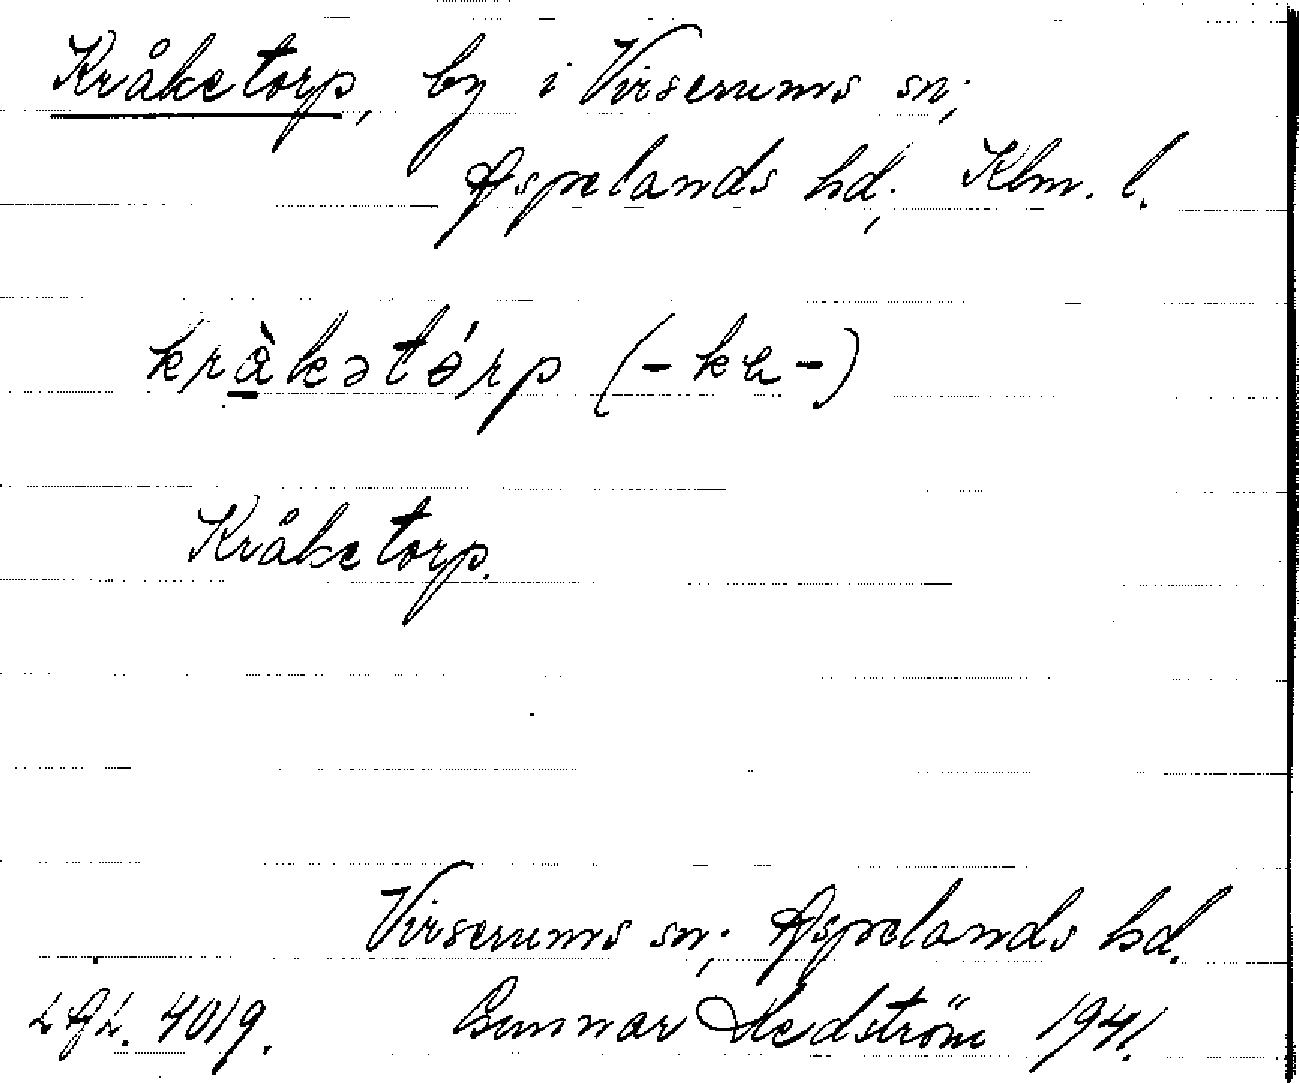 Kråketorp, by i Virserums sn;
Aspelands hd; Klm. l.
krå̀kətórp (-ka-)
Kråketorp.
Virserums sn; Aspelands hd.
LAL. 4019. Gunnar Hedström 1941.